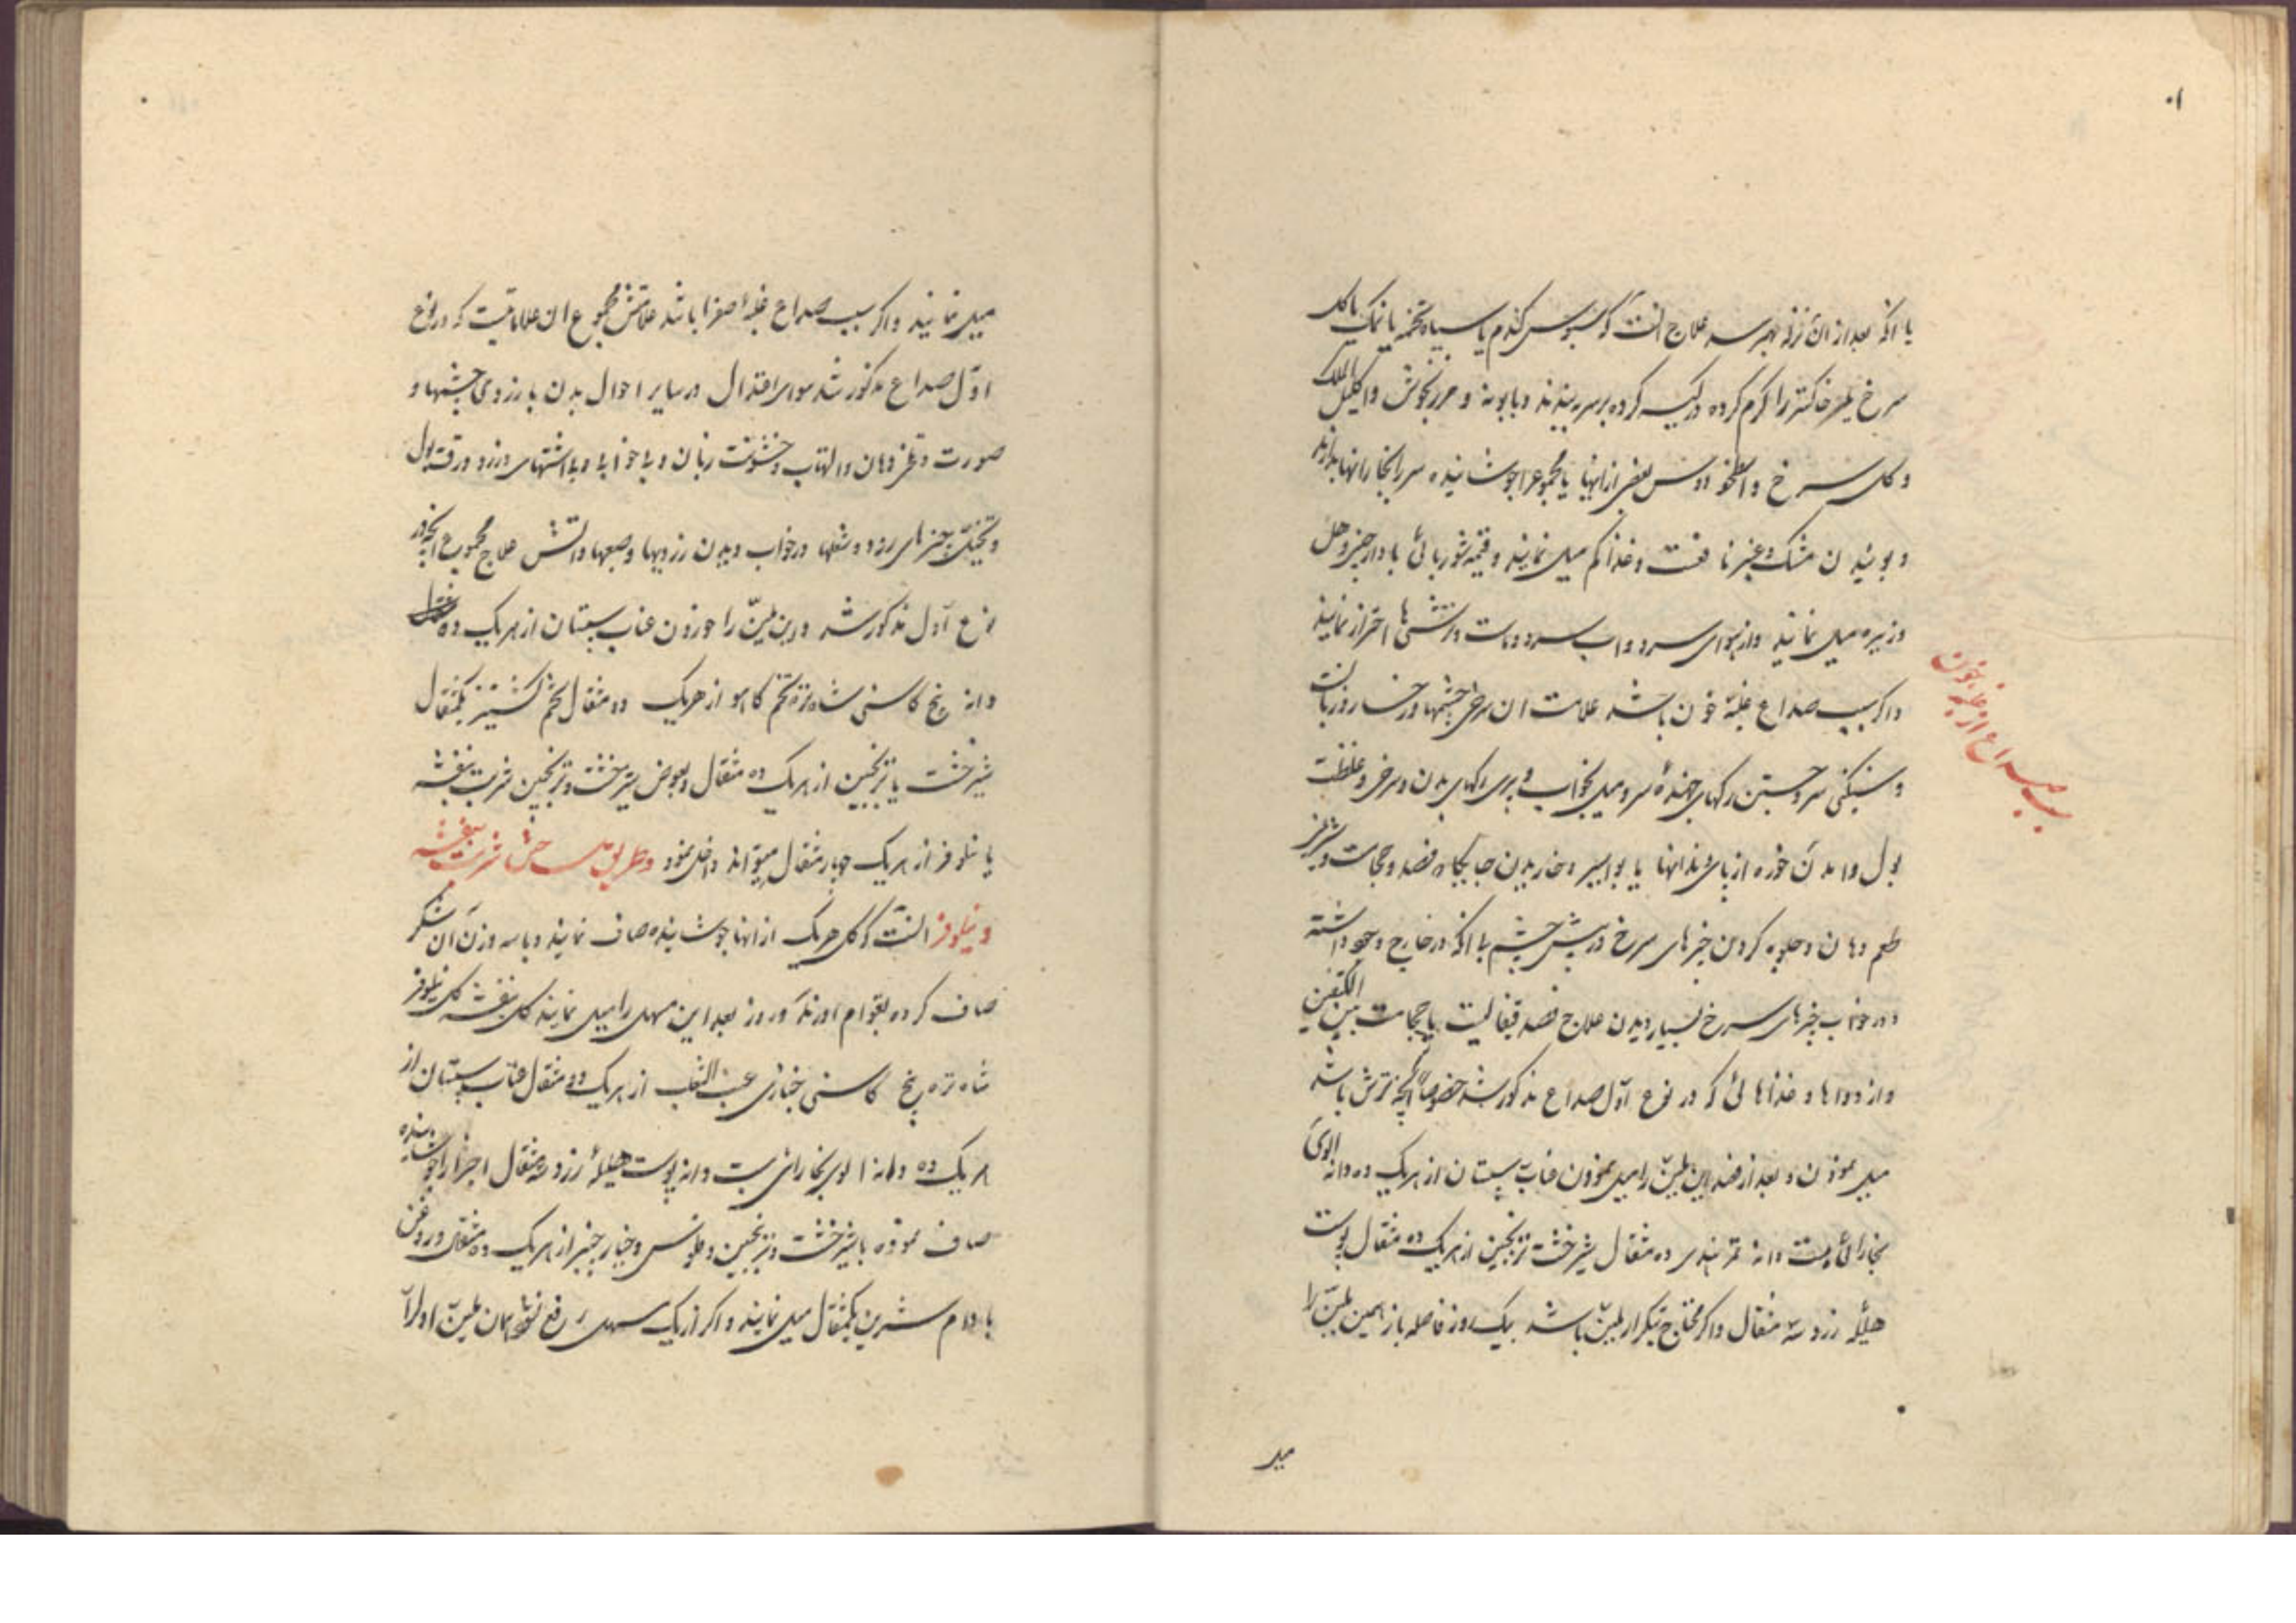 یا آنکه بعد از آن نزله بهمرسد علاج آنست که سبوس کندم یا سیاه تخمه یا نمک یا کل
سرخ یا خاکستر را کرم کرده در کیسه کرده بر سر ببندند و بابونه و مرزنجوش و اکلیل الملک
و کل سرخ و اسطوخودوس بعضی از اینها یا مجموع را جوشانیده سر را ببخار آنها بدارند
و بوئیدن مشک و عنبر نافعست و غذا کم میل نمایند و قیمه شوربائی با دارچین و هل
و زیره میل نمایند و از هوای سرد و آب سرد و ماست و ترشیها احتراز نمایند
و اکر سبب صداع غلبهٔ خون باشد علامت آن سرخی چشمها و رخسار و زبانست
و سنکینی سر و جستن رکهای جهندهٔ سر و میل بخواب و پری رکهای بدن و سرخی و غلظت
بول و آمدن خون از بن دندانها یا بواسیر و خاریدن جایکاه فصد و حجامت و شیرینی
طعم دهان و جلوه کردن چیزهای سرخ در پیش چشم با آنکه در خارج وجود نداشته
و در خواب چیزهای سرخ بسیار دیدن علاج فصد قیفالست یا حجامت بین الکتفین
و از دواها و غذاهائی که در نوع اول صداع مذکور شد خصوصاً آنچه ترش باشد
میل نمودن و بعد از فصد این ملیّن را میل نمودن عنّاب سپستان از هر یک ده دانه آلوی
بخارائی بیست دانه تمر هندی ده مثقال شیرخشت ترنجبین از هر یک ده مثقال پوست
هلیلهٔ زرد سه مثقال و اکر محتاج بتکرار ملیّن باشد یک روز فاصله باز همین ملیّن را
سبب صداع از غلبه خون
میل
میل نمایند و اکر سبب صداع غلبهٔ صفرا باشد علامتش مجموع آن علاماتیست که در نوع
اوّل صداع مذکور شد سوای اعتدال در سایر احوال بدن با زردی چشمها و
صورت و تلخی دهان و التهاب و خشونت زبان و بیخوابی و بی اشتهائی و زردی و رقت بول
و تخیّل چیزهای زرد و شعلها در خواب دیدن زردیها و آتش علاج مجموع آنچه در
نوع اوّل مذکور شد و این ملیّن را خوردن عناب سپستان از هر یک ده
دانه بیخ کاسنی شاه تره تخم کاهو از هر یک دو مثقال تخم کشنیز یکمثقال
شیرخشت یا ترنجبین از هر یک ده مثقال و بعوض شیرخشت و ترنجبین شربت بنفشه
یا نیلوفر از هر یک چهار مثقال میتواند داخل نمود و طریق ساختن شربت بنفشه
و نیلوفر آنست که کل هر یک از آنها جوشانیده صاف نمایند و با سه وزن آن شکر
صاف کرده بقوام آورند و روز بعد این مسهل را میل نمایند کل بنفشه کل نیلوفر
شاه تره بیخ کاسنی خبازی عنب الثعلب از هر یک دو مثقال عناب سپستان از
هر یک ده دانه آلوی بخارائی بیست دانه پوست هلیلهٔ زرد سه مثقال اجزا را جوشانیده
صاف نموده با شیرخشت و ترنجبین و فلوس خیارچنبر از هر یک ده مثقال و روغن
بادام شیرین یکمثقال میل نمایند و اکر از یک مسهل رفع نشود همان ملیّن اول را